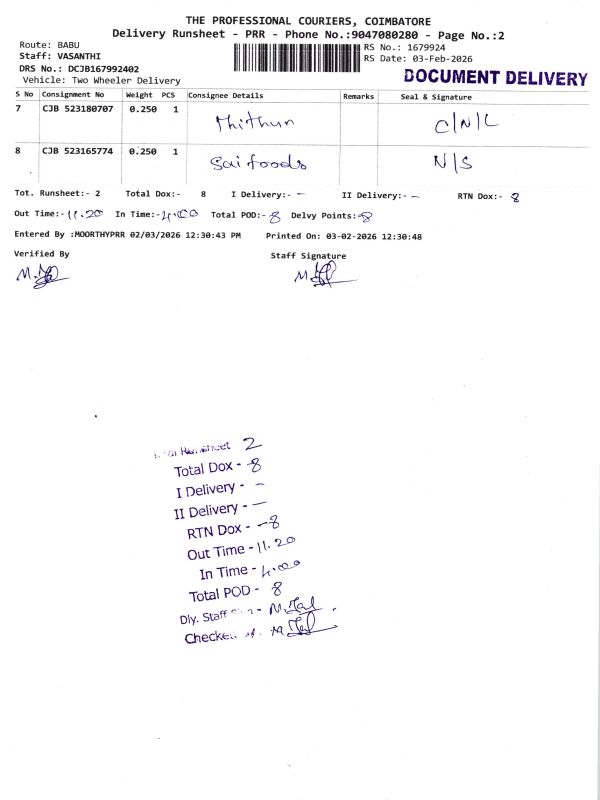 THE PROFESSIONAL COURIERS, COIMBATORE
Delivery Runsheet - PRR - Phone No.:9047080280 - Page No.:2
Route: BABU
Staff: VASANTHI
DRS No.: DCJB167992402
Vehicle: Two Wheeler Delivery
RS No.: 1679924
RS Date: 03-Feb-2026
DOCUMENT DELIVERY
S No Consignment No Weight PCS Consignee Details Remarks Seal & Signature
7 CJB 523180707 0.250 1 Mithun C/N/L
8 CJB 523165774 0.250 1 Sai foods N/S
Tot. Runsheet:- 2 Total Dox:- 8 I Delivery:- - II Delivery:- - RTN Dox:- 8
Out Time:- 11.20 In Time:- 4.00 Total POD:- 8 Delvy Points:- 8
Entered By :MOORTHYPRR 02/03/2026 12:30:43 PM Printed On: 03-02-2026 12:30:48
Verified By Staff Signature
2
Total Dox - 8
I Delivery - -
II Delivery - -
RTN Dox - -8
Out Time - 11.20
In Time - 4.00
Total POD - 8
Dly. Staff